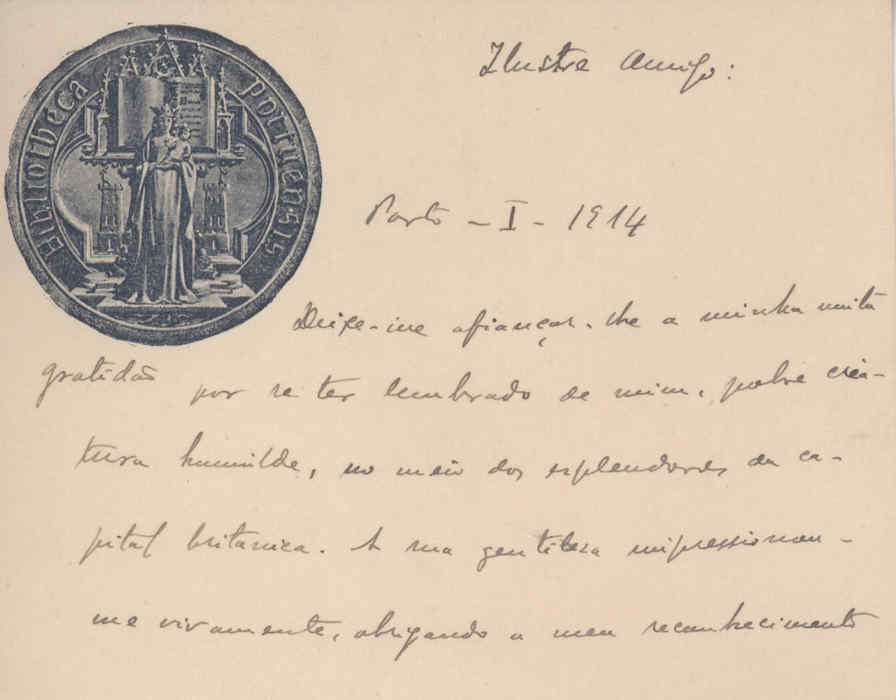 Bibliotheca Portuensis
Ilustre Amigo:
Porto - I - 1914
Deixe-me afiançar-lhe a minha muita
gratidão por se ter lembrado de mim, pobre cria-
tura humilde, no meio dos esplendores da ca-
pital britanica. A sua gentileza impressionou-
me vivamente, obrigando o meu reconhecimento